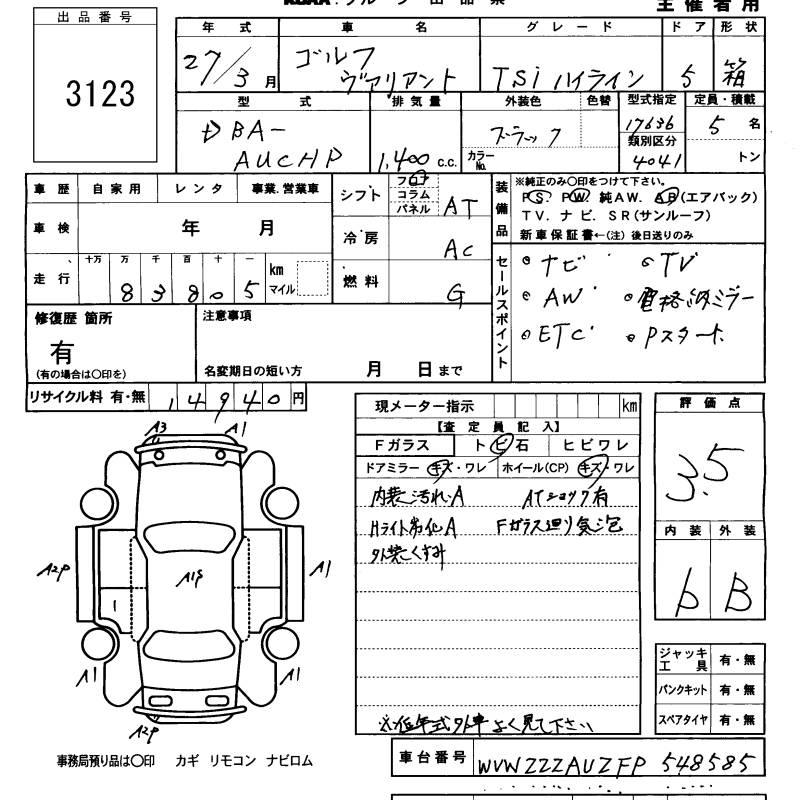 主催者用
出品番号
3123
年式 車名 グレード ドア 形状
27/3月 ゴルフ ヴァリアント TSi ハイライン 5 箱
型式 排気量 外装色 色替 型式指定 定員・積載
DBA-AUCHP 1,400 c.c. ブラック カラーNo. 17636 5名
類別区分 4041 トン
車歴 自家用 レンタ 事業.営業車
シフト フロア コラム パネル AT
装備品 ※純正のみ〇印をつけて下さい。
PS. PW. 純AW. AB(エアバック)
TV. ナビ. SR(サンルーフ)
新車保証書←(注) 後日送りのみ
車検 年 月
冷房 AC
走行 十万 万 千 百 十 一 km マイル
8 3 8 0 5
燃料 G
セールスポイント
ナビ TV
AW 電格ミラー
ETC Pスタート
修復歴 箇所
有
(有の場合は〇印を)
注意事項
名変期日の短い方 月 日まで
リサイクル料 有・無 14940円
現メーター指示 km
【査定員記入】
Fガラス トビ石 ヒビワレ
ドアミラー キズ・ワレ ホイール(CP) キズ・ワレ
内装汚れA ATショック有
Hライト劣化A Fガラス廻り気泡
外装くすみ
※低年式外車よく見て下さい
評価点
3.5
内装 外装
b B
ジャッキ工具 有・無
パンクキット 有・無
スペアタイヤ 有・無
A3 A1
A2P A1S A1
1
A1 A1
A2P
事務局預り品は〇印 カギ リモコン ナビロム
車台番号 WVWZZZAUZFP 548585